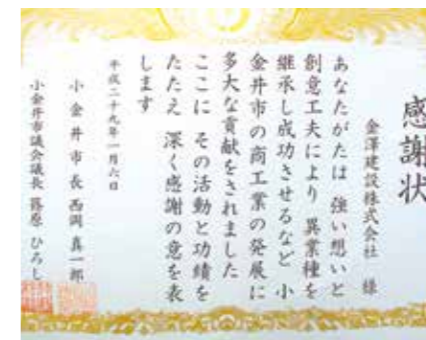 感謝状
金澤建設株式会社 様
あなたがたは 強い想いと
創意工夫により 異業種を
継承し成功させるなど 小
金井市の商工業の発展に
多大な貢献をされました
ここに その活動と功績を
たたえ 深く感謝の意を表
します
平成二十九年一月六日
小金井市長 西岡 真一郎
小金井市議会議長 篠原 ひろし